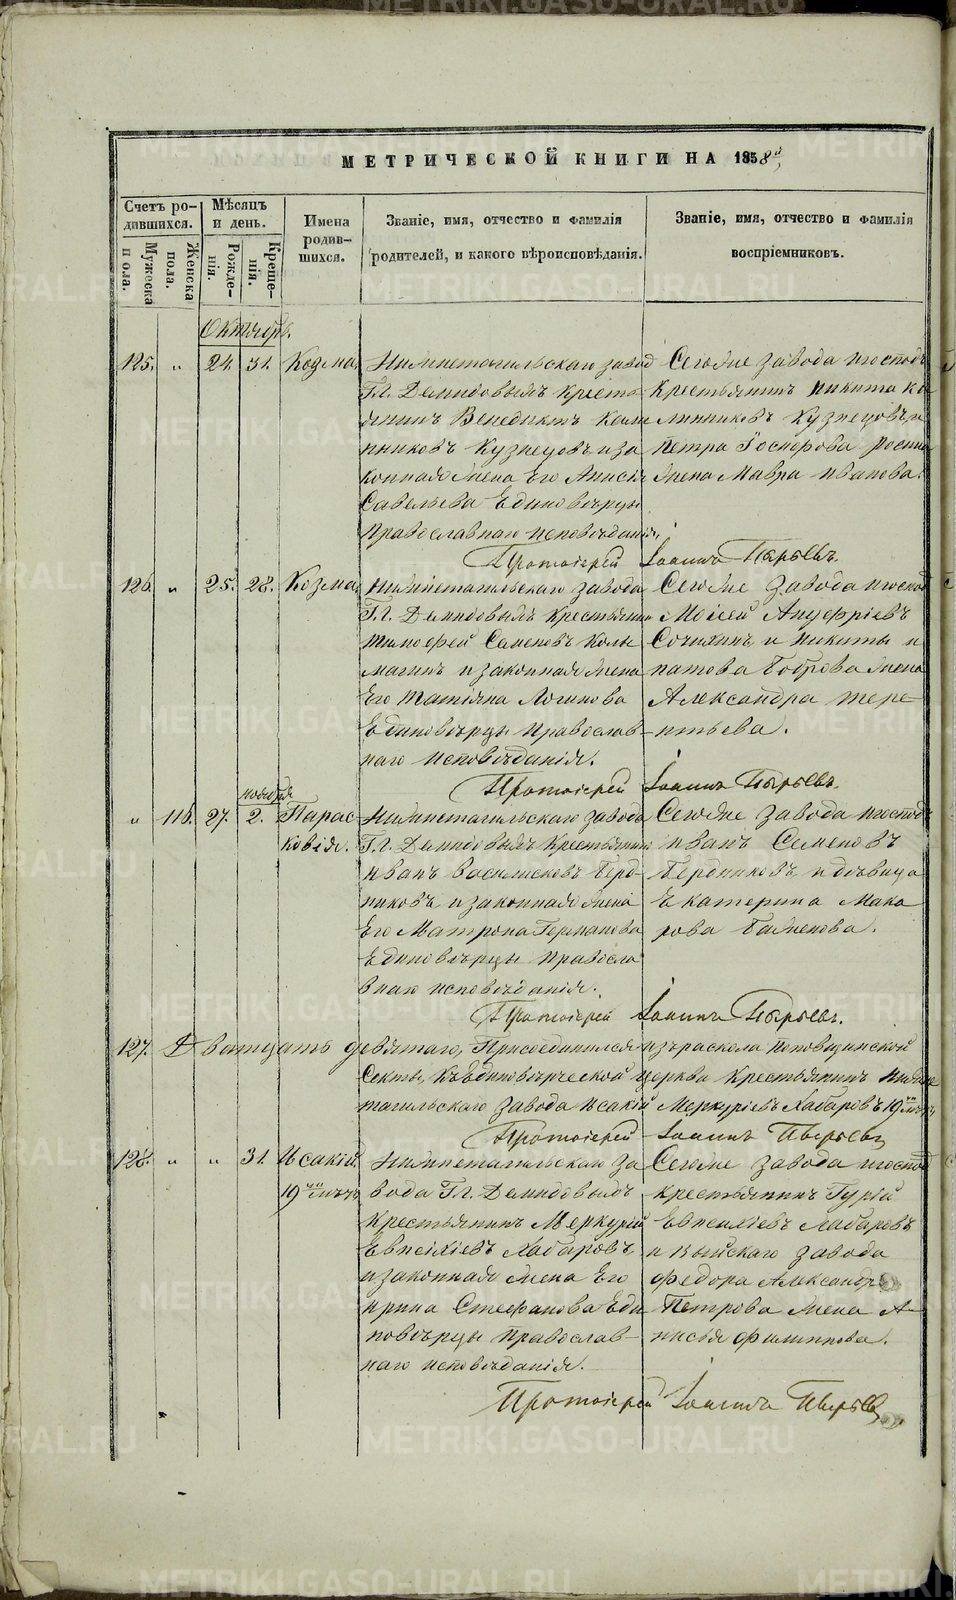 МЕТРИЧЕСКОЙ КНИГИ НА 1858й
Счетъ ро-
дившихся.
Мужеска
пола.
Женска
пола.
Мѣсяцъ
и день.
Рожде-
нія.
Креще-
нія.
Имена
родив-
шихся.
Званіе, имя, отчество и фамилія
родителей, и какого вѣроисповѣданія.
Званіе, имя, отчество и фамилія
воспріемниковъ.
Октябрь.
125. " 24. 31. Козма,
Нижнетагильскаго завод
Гг. Демидовымъ кресть
янинъ Венедиктъ Кали
нниковъ Кузнецовъ и за
конная жена Его Анисія
Савельева Единовѣрцы
Православнаго исповѣданія,
Сегоже завода и господъ
Крестьянинъ Никита Ка
линниковъ Кузнецовъ, и
Петра жена Мавра Иванова.
Протоіерей Іоаннъ Пырьевъ.
126. " 25. 28. Козма,
Нижнетагильскаго завода
Гг. Демидовымъ Крестьянинъ
Тимофей Семеновъ Колы
магинъ и законная жена
Его Татіяна Логинова
Единовѣрцы Православ-
наго исповѣданія.
Сегоже завода и господ
Моисей Ануфріевъ
Сочихинъ, и Никиты И
патова Боброва жена
Александра Тере-
нтьева.
Протоіерей Іоаннъ Пырьевъ.
ноября
" 116. 27. 2. Парас-
ковія.
Нижнетагильскаго завода
Гг. Демидовымъ Крестьянинъ
Иванъ Берд-
никовъ и законная жена
Его Матрона Германова
Единовѣрцы Правосла
внаго исповѣданія.
Сегоже завода и господъ
Иванъ Семеновъ
Бердниковъ, и дѣвица
Екатерина Мака
рова Баженова.
Протоіерей Іоаннъ Пырьевъ.
127. Дватцать девятаго, Присоединился изъ раскола Поповщинской
Секты, къ Единовѣрческой церкви Крестьянинъ Нижне
тагильскаго завода Исакій Меркуріевъ Хабаровъ 19ти лѣтъ
Протоіерей Іоаннъ Пырьевъ
128. " " 31. Исакій.
19ти лѣтъ
Нижнетагильскаго за
вода Гг. Демидовымъ
Крестьянинъ Меркурій
Евпсихіевъ Хабаровъ
и законная жена Его
Ирина Стефанова Еди
новѣрцы Православ-
наго исповѣданія.
Сегоже завода и господ
крестьянинъ Гурій
Евпсихіевъ Хабаровъ
и Выйскаго завода
Федора Александра
Петрова жена А-
нисія Филиппова.
Протоіерей Іоаннъ Пырьевъ
METRIKI.GASO-URAL.RU